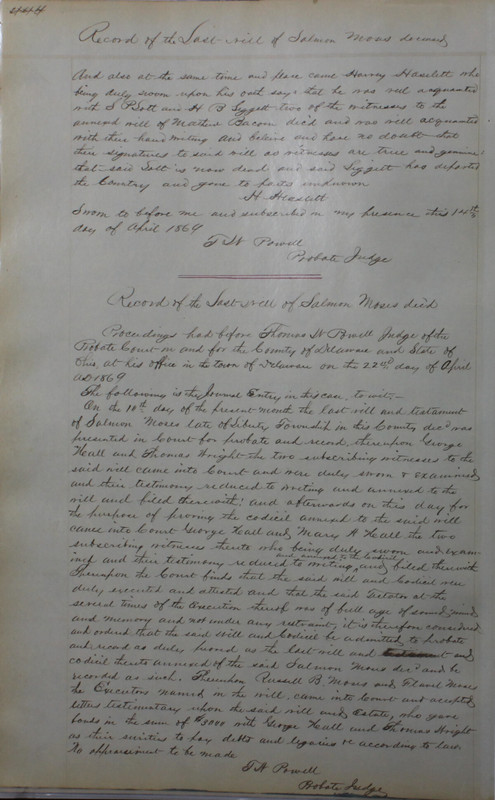 Record of the Last will of Salmon Moses deceased
And also at the same time and place came Harvey Haslett who
being duly sworn upon his oath says that he was well acquainted
with S P Sott and H B Liggett two of the witnesses to the
annexed will of Mathew Bacom dec'd and was well acquainted
with their hand writing and believe and have no doubt that
their signatures to said will as witnesses are true and genuine
that said Sott is now dead and said Liggett has departed
the Country and gone to parts unknown
H Haslett
Sworn to before me and subscribed in my presence this 14th
day of April 1869
T W Powell
Probate Judge
Record of the Last will of Salmon Moses dec'd
Proceedings had before Thomas W Powell Judge of the
Probate Court in and for the County of Delaware and State of
Ohio, at his office in the town of Delaware on the 22nd day of April
AD 1869
The following is the Journal Entry in this case, to wit;
On the 10th day of the present month the last will and testament
of Salmon Moses late of Liberty Township in this County dec'd was
presented in Court for probate and record, thereupon George
Hall and Thomas Wright the two subscribing witnesses to the
said will came into Court and were duly sworn & examined
and their testimony reduced to writing and annexed to the
will and filed therewith; and afterwards on this day for
the purpose of proving the codicil annexed to the said will
came into Court George Hall and Mary A Hall the two
subscribing witnesses thereto who being duly sworn and exam
ined and their testimony reduced to writing and annexed to the codicil and filed therewith
Thereupon the Court finds that the said will and Codicil were
duly executed and attested and that the said testator at the
several times of the execution thereof was of full age of sound mind
and memory and not under any restraint, it is therefore considered
and ordered that the said Will and Codicil be admitted to probate
and record as duly proved as the last will and testament and
codicil thereto annexed of the said Salmon Moses dec'd and be
recorded as such. Thereupon Russell B Moses and Flavel Moses
the Executors named in the will, came into Court and accepted
letters testamentary upon the said will and Estate, who gave
bonds in the sum of $3000 with George Hall and Thomas Wright
as their sureties to pay debts and legacies &c according to law
No appraisement to be made
T W Powell
Probate Judge